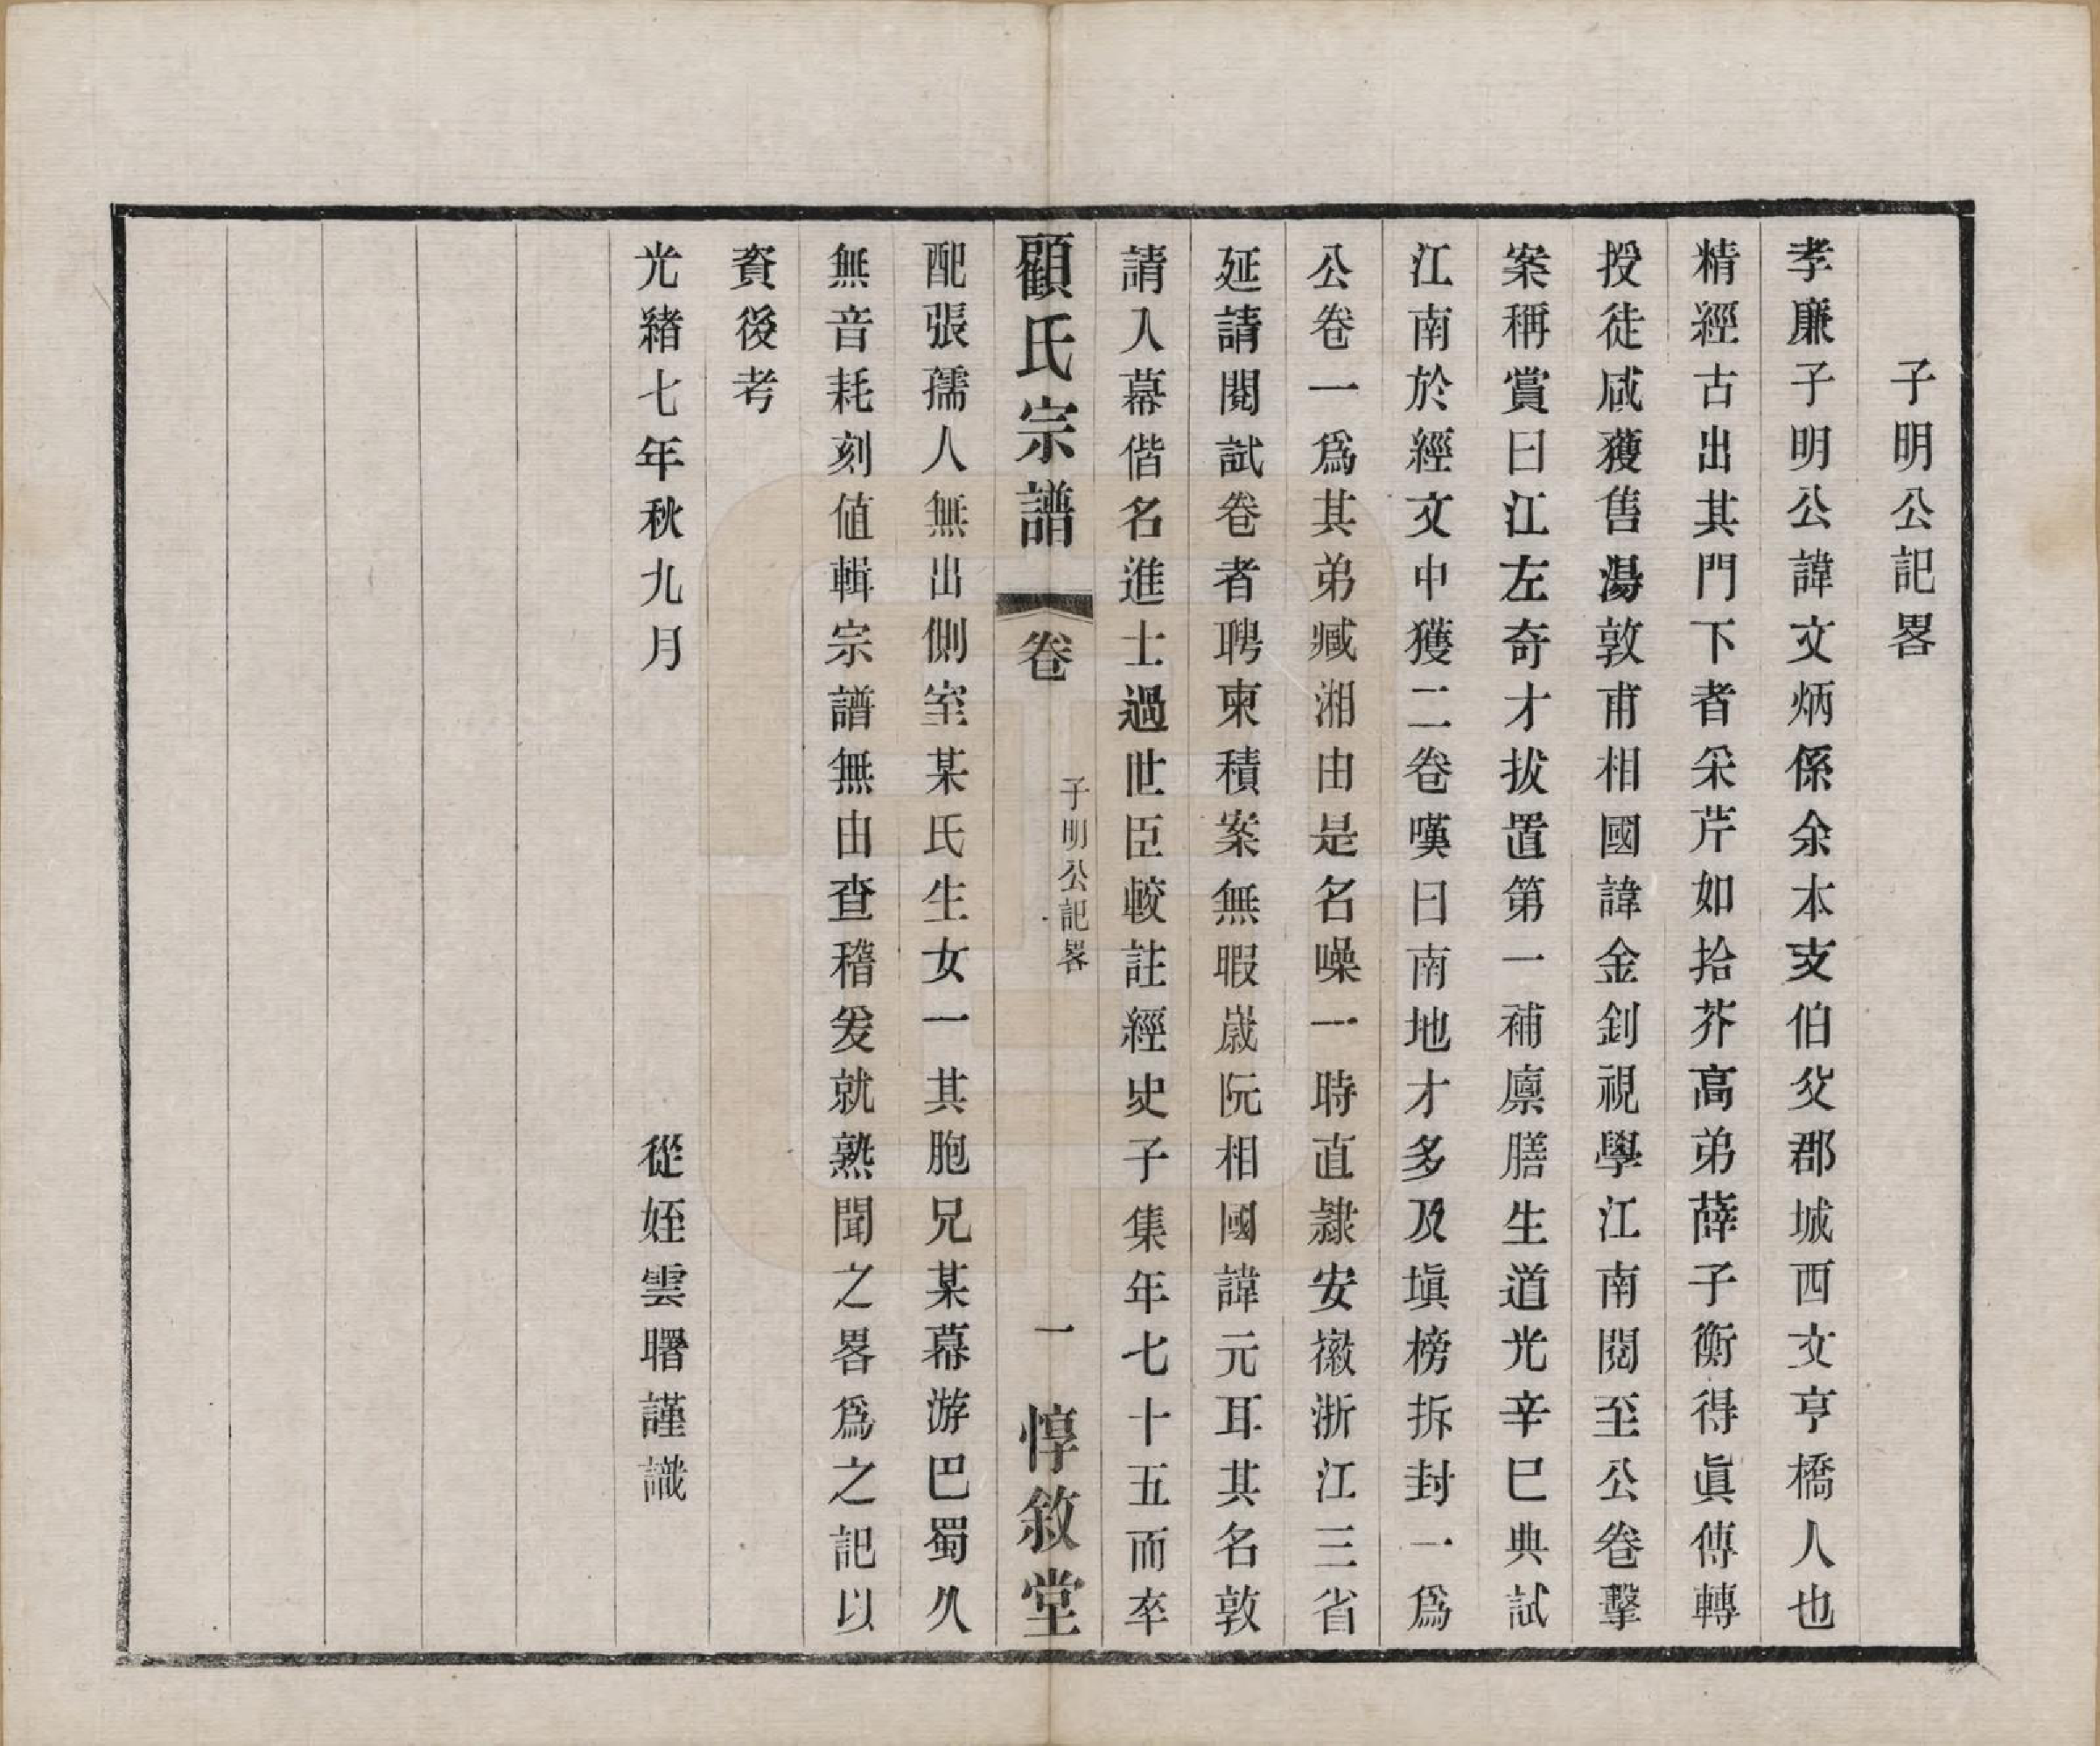 子明公記畧
孝廉子明公諱文炳係余本支伯父郡城西文亨橋人也
精經古出其門下者采芹如拾芥高弟薛子衡得眞傳轉
授徒咸獲售湯敦甫相國諱金釗視學江南閱至公卷擊
案稱賞曰江左奇才拔置第一補廪膳生道光辛巳典試
江南於經文中獲二卷嘆曰南地才多及塡榜拆封一爲
公卷一爲其弟臧湘由是名噪一時直隸安徽浙江三省
延請閱試卷者聘柬積案無暇嵗阮相國諱元耳其名敦
請入幕偕名進士過世臣較註經史子集年七十五而卒
顧氏宗譜
卷
子明公記畧
一
惇敘堂
配張孺人無出側室某氏生女一其胞兄某幕游巴蜀久
無音耗刻値輯宗譜無由查稽爰就熟聞之畧爲之記以
資後考
光緒七年秋九月
從姪雲曙謹識